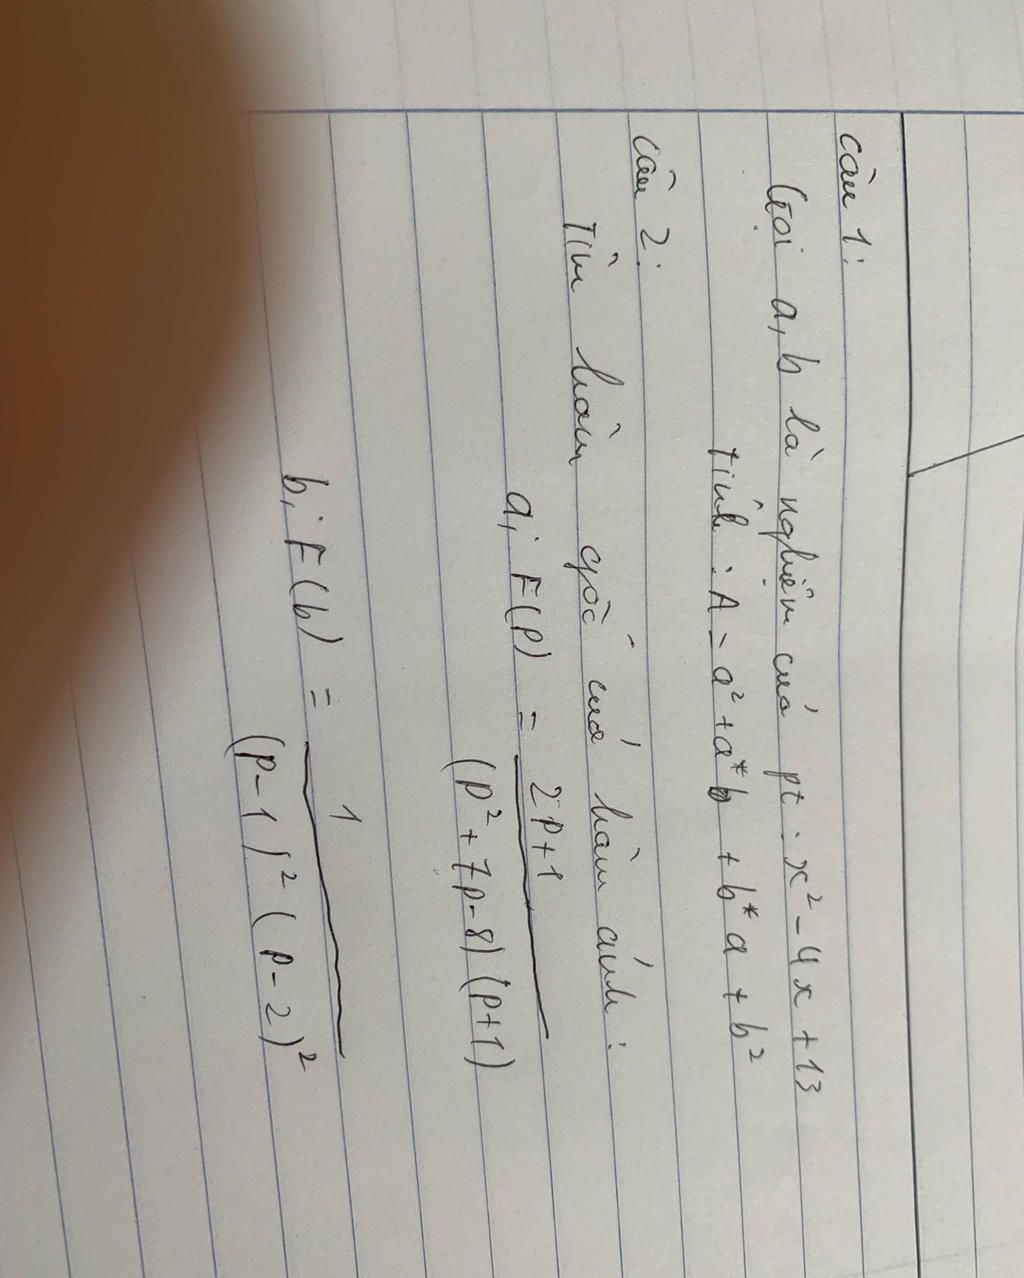 Câu 1:
Gọi a, b là nghiệm của pt: x² - 4x + 13
Tính: A = a² + a*b + b*a + b²
Câu 2:
Tìm hàm gốc của hàm ảnh:
a, F(P) = 2P+1 / (P² + 7P - 8)(P+1)
b, F(b) = 1 / (P-1)² (P-2)²